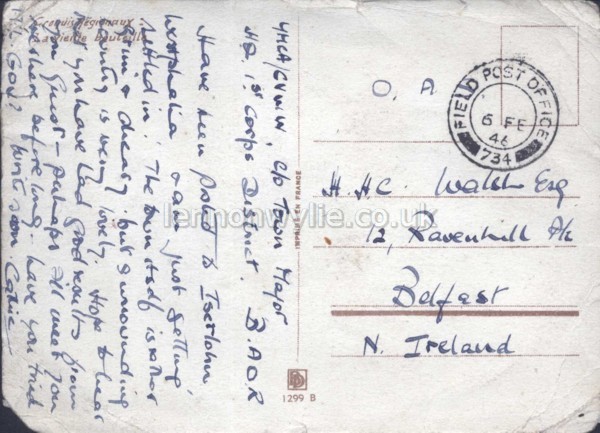 Croquis Régionaux
La vieille bouteille
YMCA/CVWW, c/o Town Major
HQ. 1st Corps District. B.A.O.R
Have been posted to Iserlohn,
Westphalia & am just getting
settled in. The town itself is rather
& dreary but surrounding
country is very lovely. Hope to hear
you have had good results from
your Guest - perhaps I'll meet you
there before long, have you tried
Write soon
IMPRIMÉ EN FRANCE
1299 B
O. A
FIELD POST OFFICE
6 FE
46
734
H. H. C. Walsh Esq
12, Ravenhill Pk
Belfast
N. Ireland
lemonwylie.co.uk